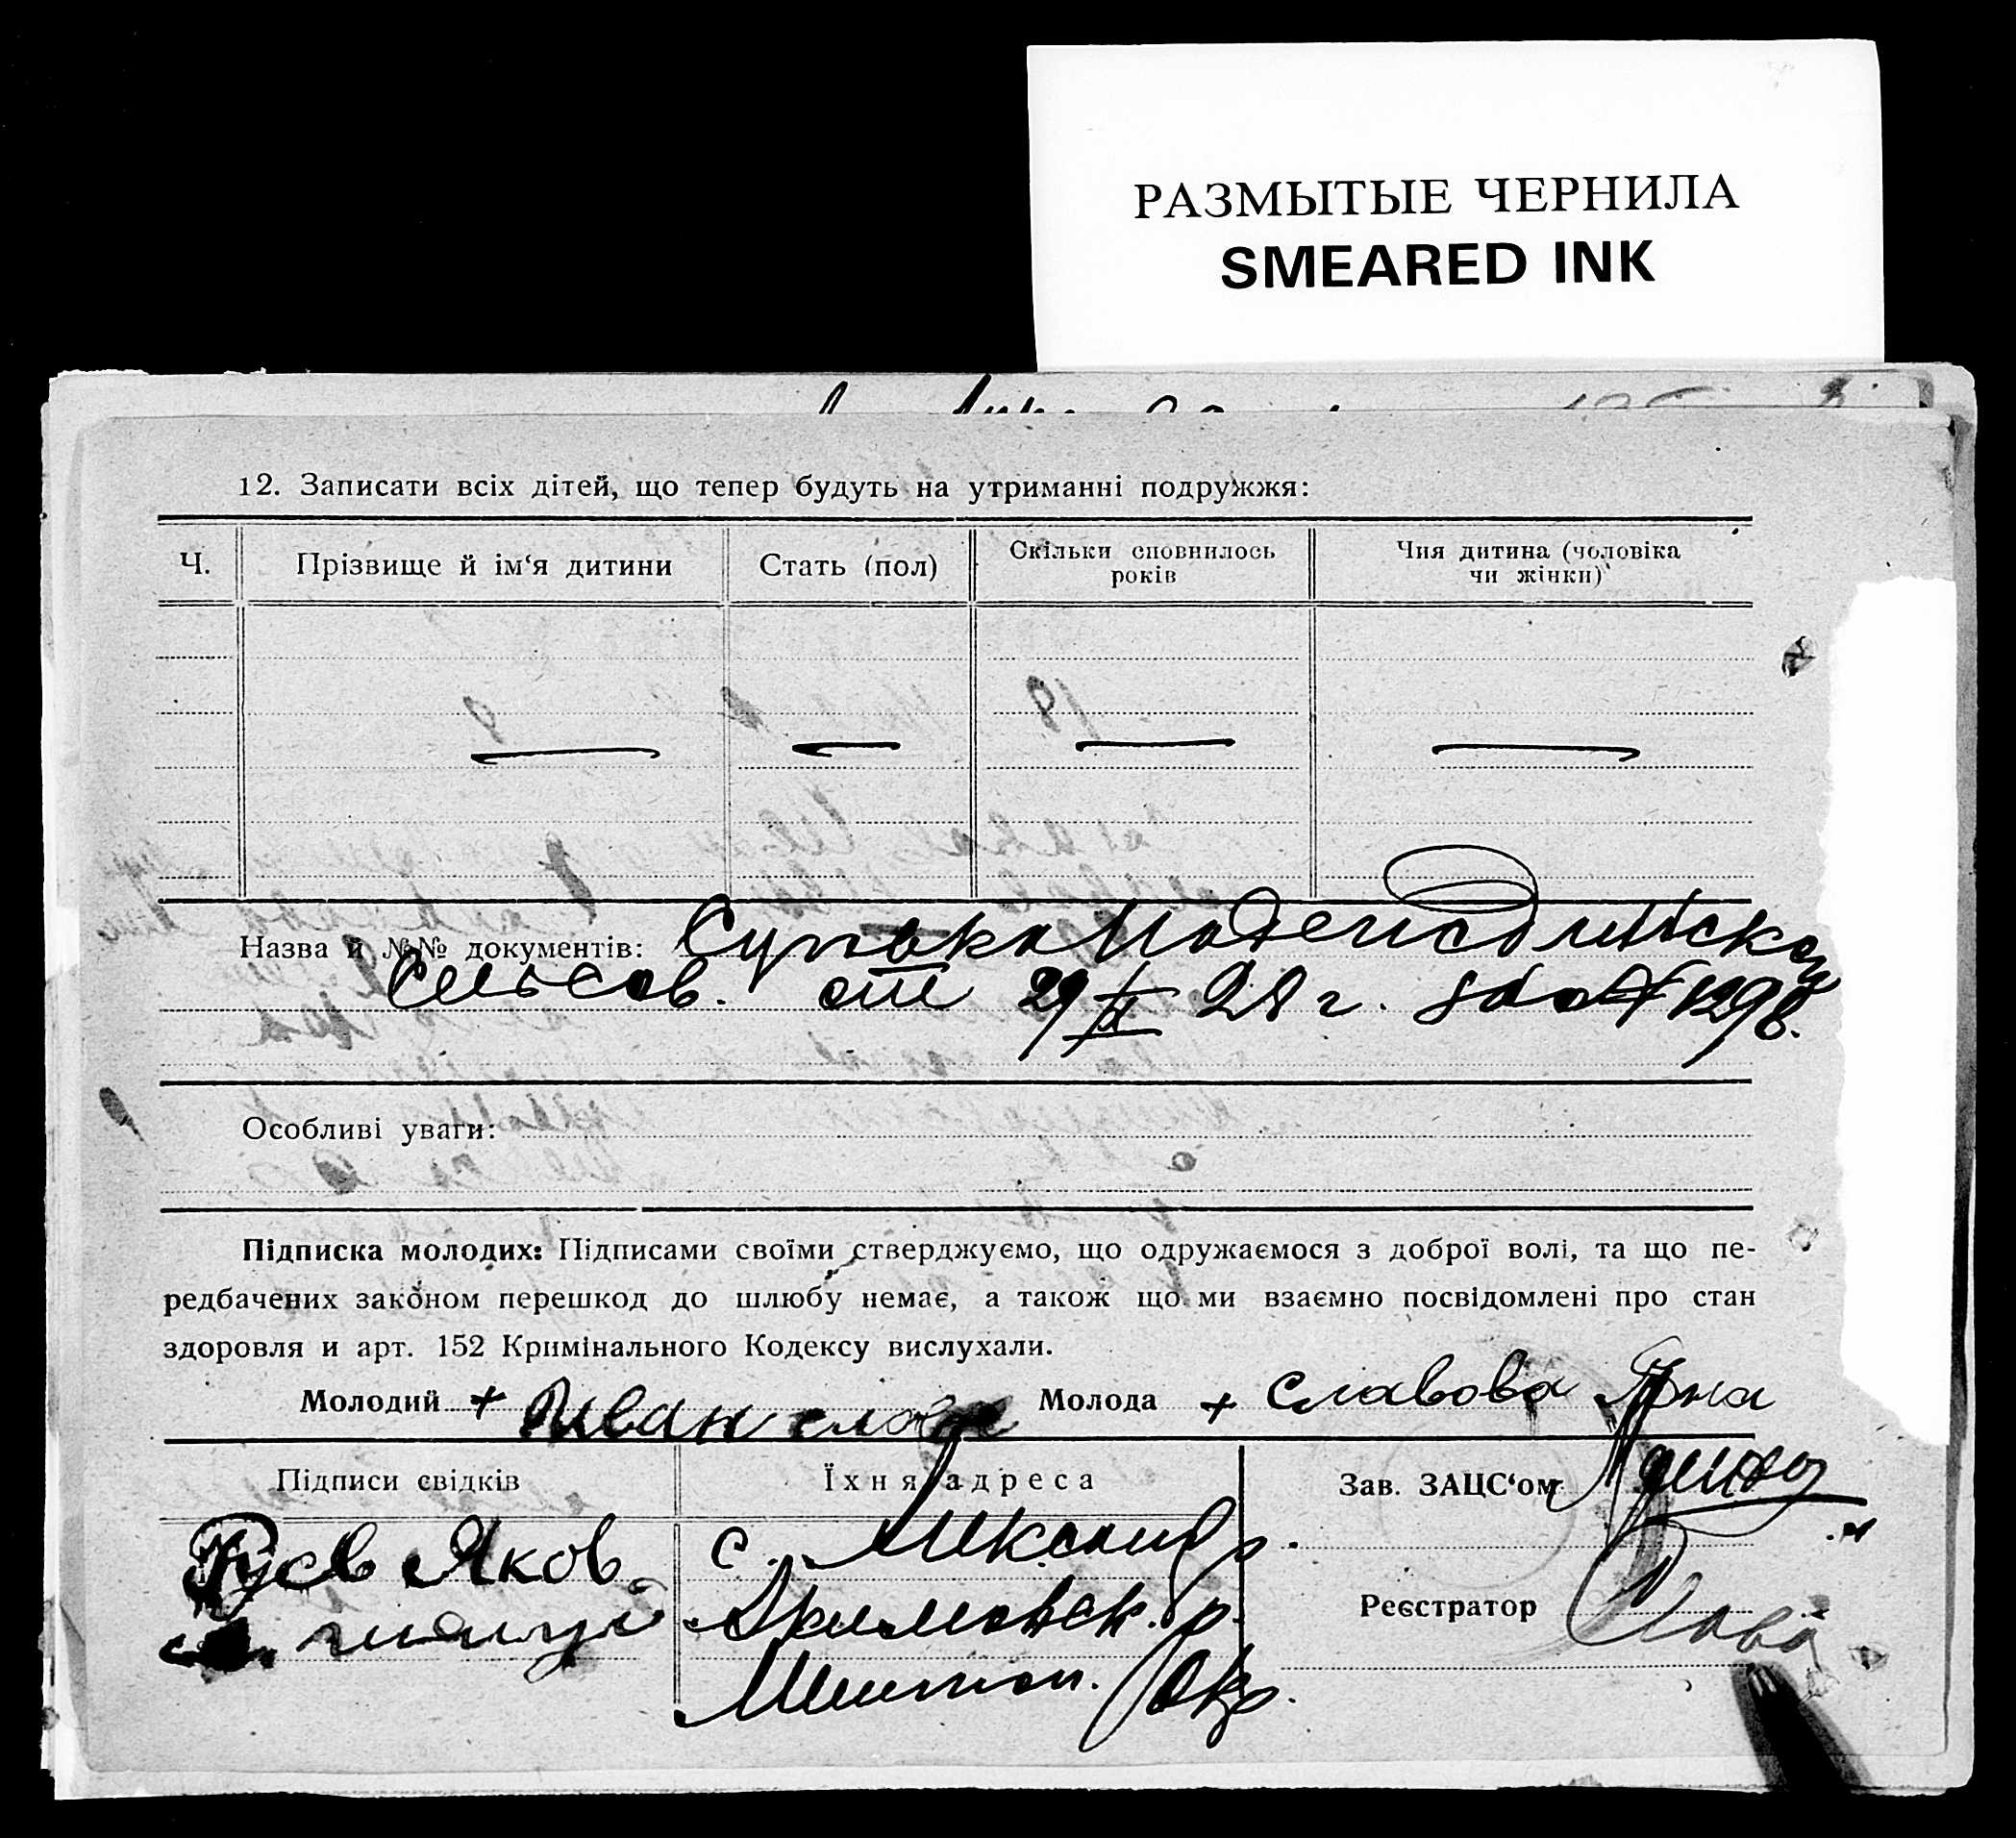 РАЗМЫТЫЕ ЧЕРНИЛА
SMEARED INK
12. Записати всіх дітей, що тепер будуть на утриманні подружжя:
Ч.
Прізвище й ім‘я дитини
Стать (пол)
Скільки сповнилось
років
Чия дитина (чоловіка
чи жінки)
Назва й №№ документів:
от 29/ 28 г.
Особливі уваги:
Підписка молодих: Підписами своїми стверджуємо, що одружаємося з доброї волі, та що пе-
редбачених законом перешкод до шлюбу немає, а також що ми взаємно посвідомлені про стан
здоровля и арт. 152 Кримінального Кодексу вислухали.
Молодий + Иван
Молода + Славова
Підписи свідків
Їхня адреса
Зав. ЗАЦС‘ом
Гусев Яков
с.
Акимовск. р.
Реєстратор
Мелитоп. Окр.